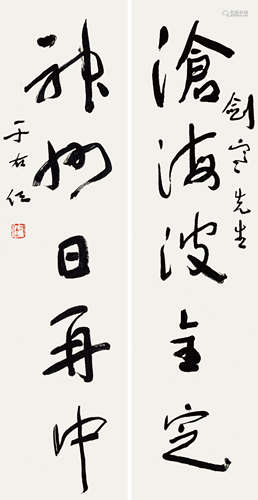 滄海波全定
劍 先生
神州日再中
于右任